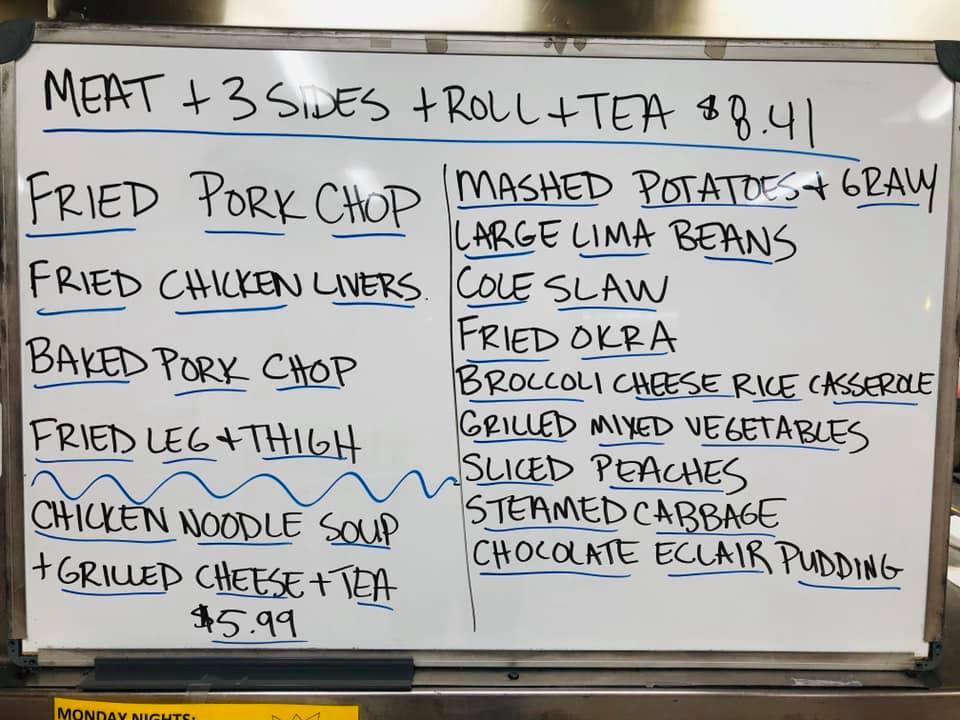 MEAT + 3 SIDES + ROLL + TEA $8.41
FRIED PORK CHOP
FRIED CHICKEN LIVERS.
BAKED PORK CHOP
FRIED LEG + THIGH
CHICKEN NOODLE SOUP
+ GRILLED CHEESE + TEA
$5.99
MASHED POTATOES + GRAVY
LARGE LIMA BEANS
COLE SLAW
FRIED OKRA
BROCCOLI CHEESE RICE CASSEROLE
GRILLED MIXED VEGETABLES
SLICED PEACHES
STEAMED CABBAGE
CHOCOLATE ECLAIR PUDDING
MONDAY NIGHTS: